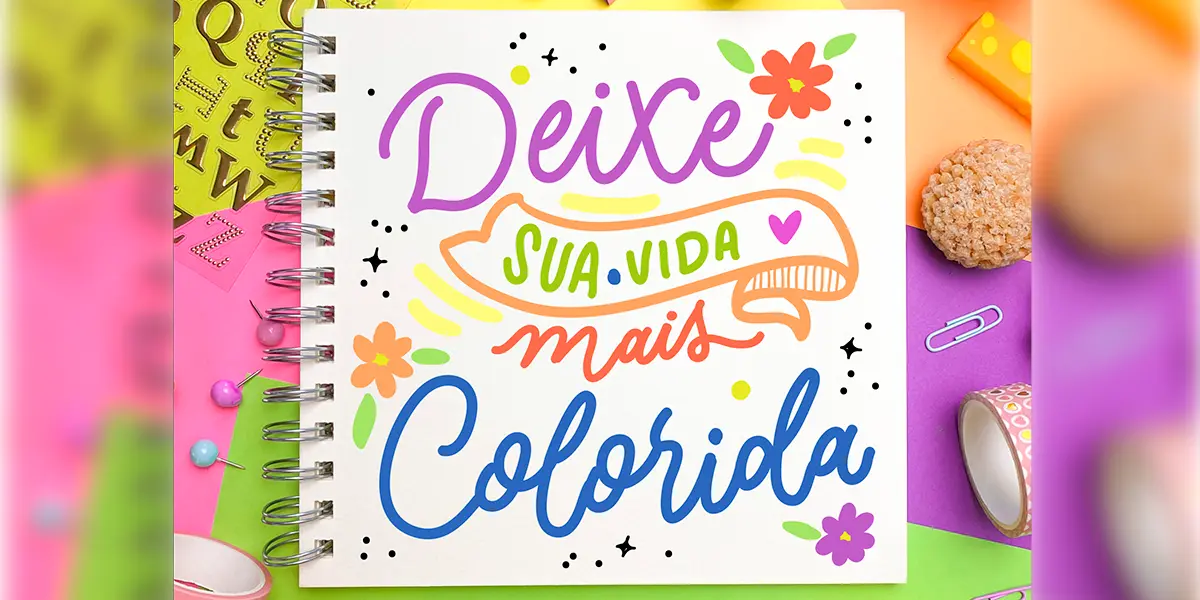 Deixe
SUA • VIDA
mais
Colorida